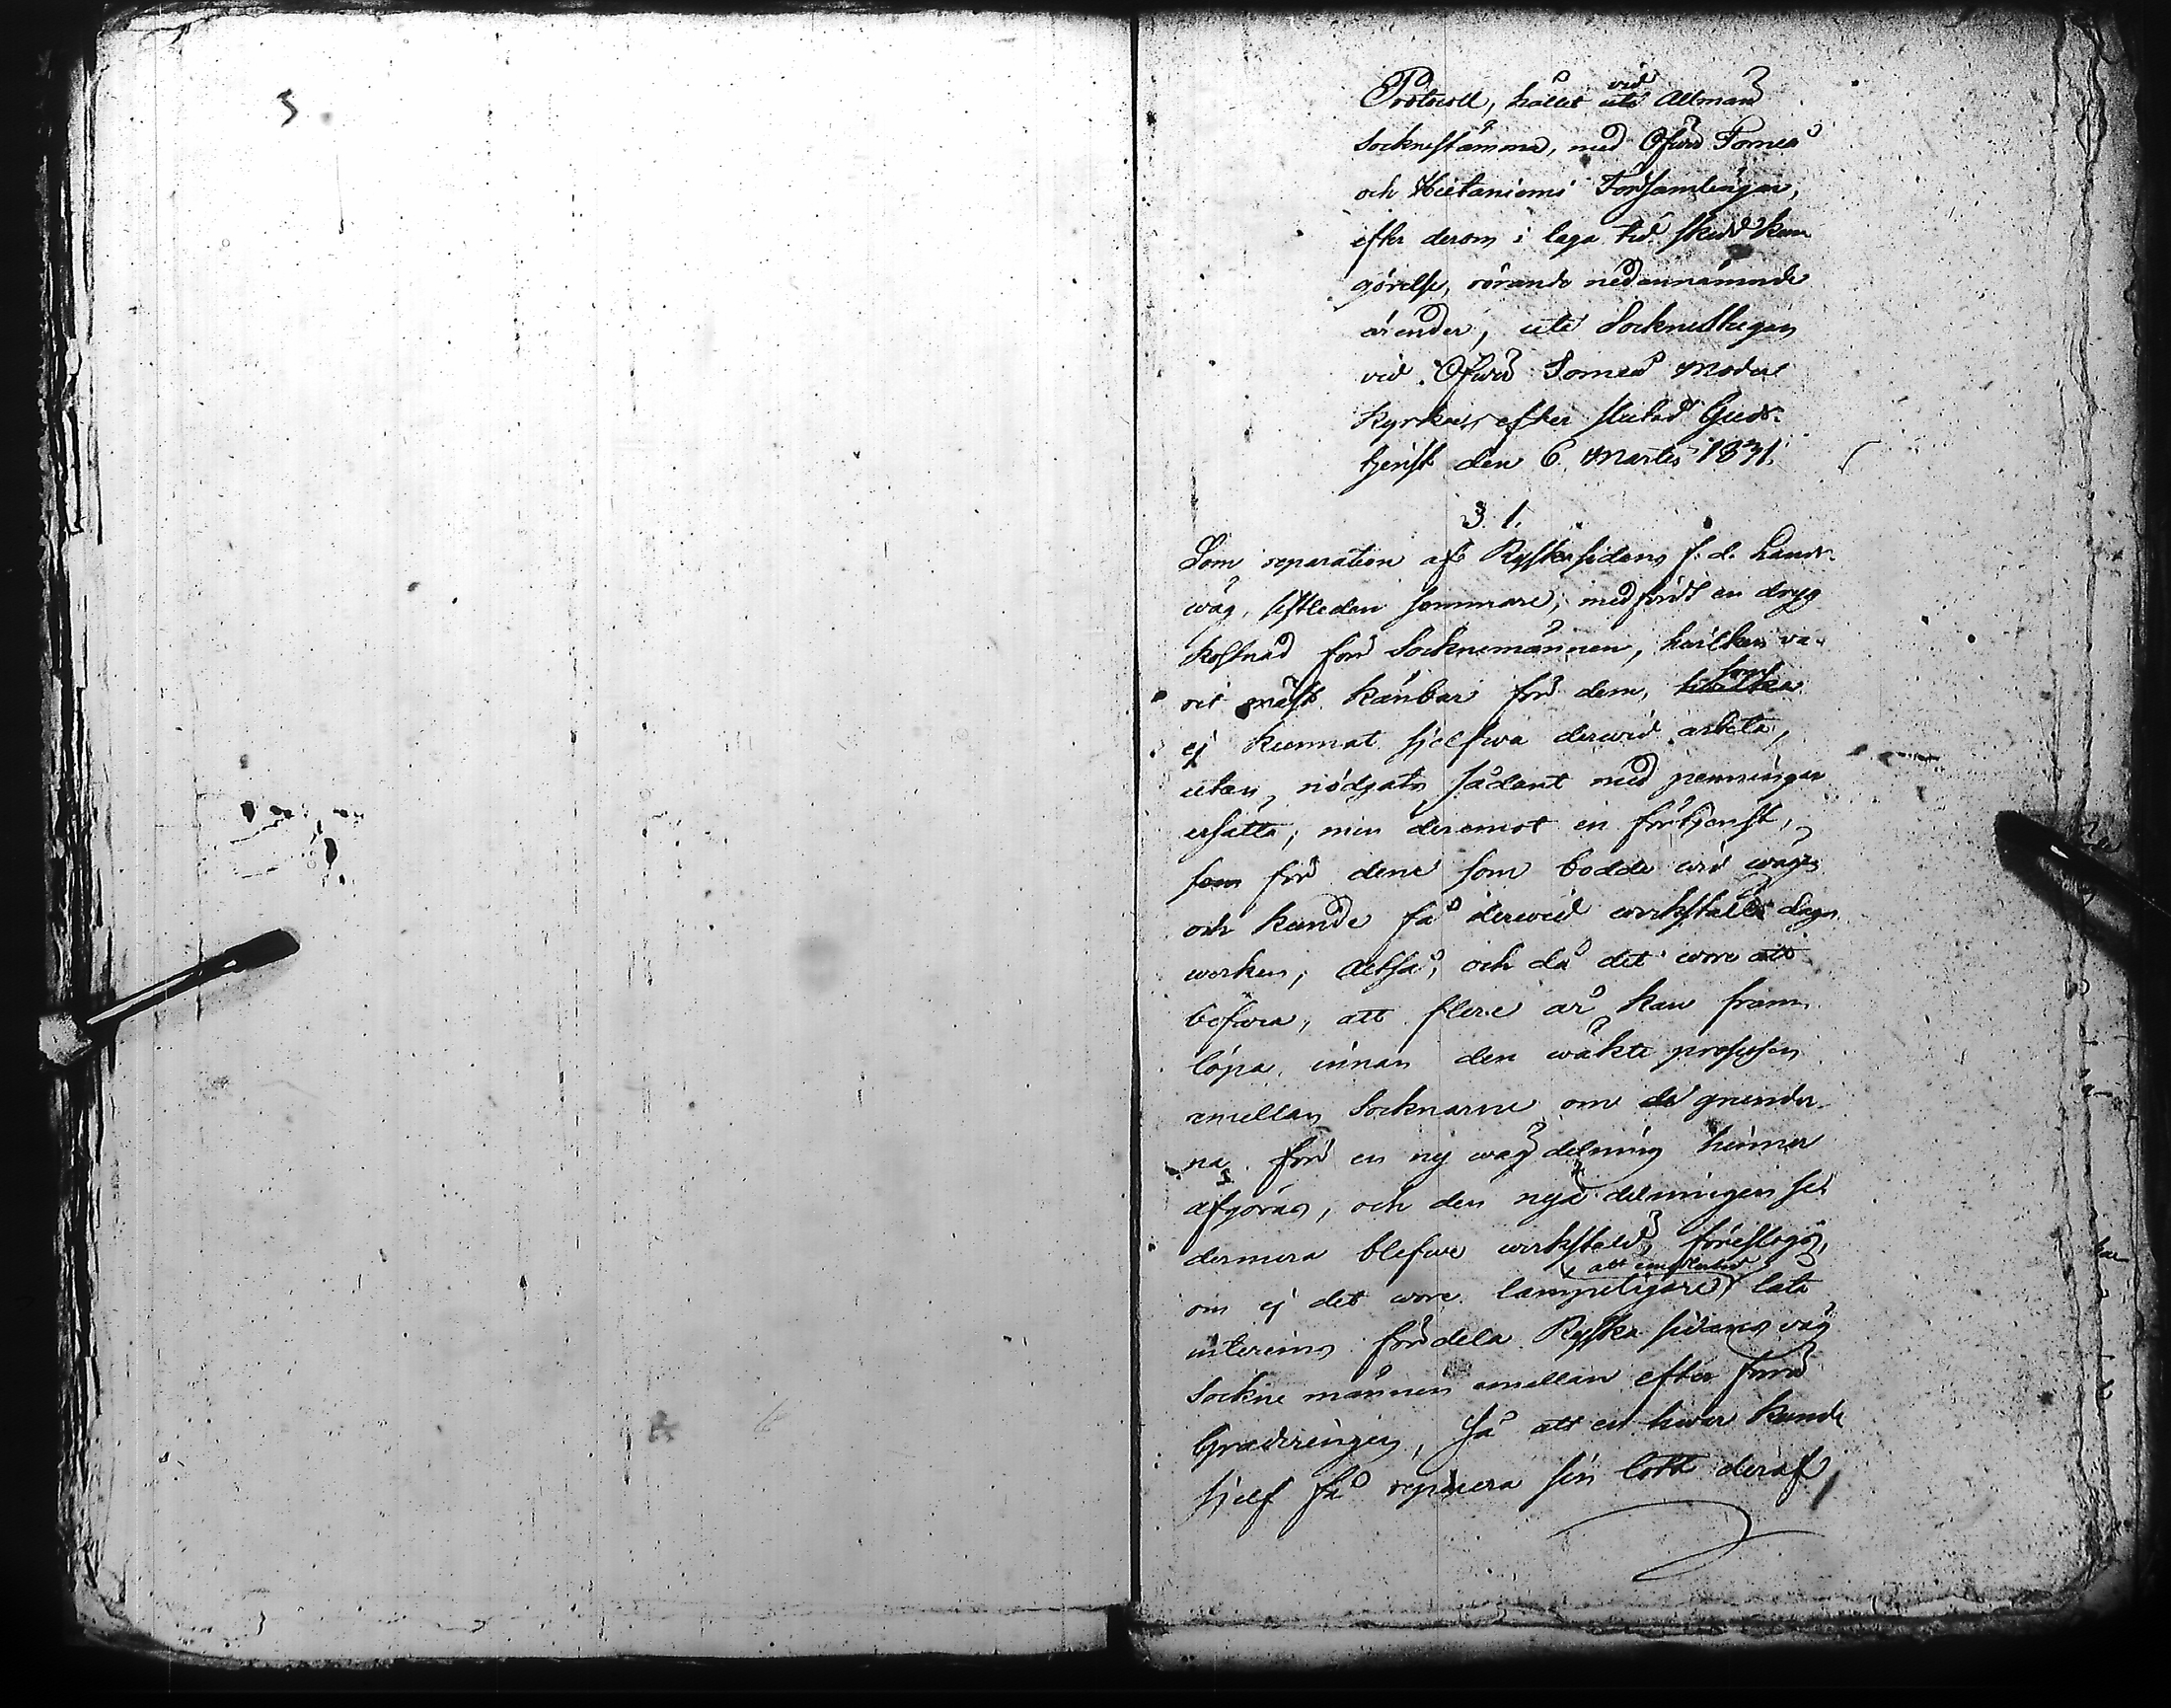 Protocoll, hållet vid uti Allmän
Socknestämma, med Öfver Torneå
och Hietaniemi Församlingar,
efter derom i laga tid skedd kun
görelse, rörande nedannämnde
ärender, uti Socknestugan
vid Öfver Torneå Moder
kyrkan efter slutad Guds-
tjenst den 6. Martii 1831.
§. 1.
Som reparation af Ryska sidans f. d. Lands-
wäg, sistleden sommare, medfördt en dryg
kostnad för Socknemännen, hvilken va-
rit mäst känbar för dem, hvilka som
ej kunnat sjelfwa derwid arbeta,
utan nödgats sådant med penningar
ersätta; men deremot en förtjenst,
som för dem som bodde wid wägen
och kunde få derwid werkställa dags
werken; Altså, och då det wore att
befara, att flere år kan fram
löpa innan den wäkte processen
emellan Socknarne om de grunder
na för en ny wäg delning hinner
afgöras, och den nya delningen se-
dermera blefwe werkstäld, föreslogs,
om ej det wore lämpeligare, att emedlertid låta
interims fördela Ryska sidans väg
Sockne männen emellan efter förra
Graderingen, så att en hwar kunde
sjelf få reparera sin lott deraf